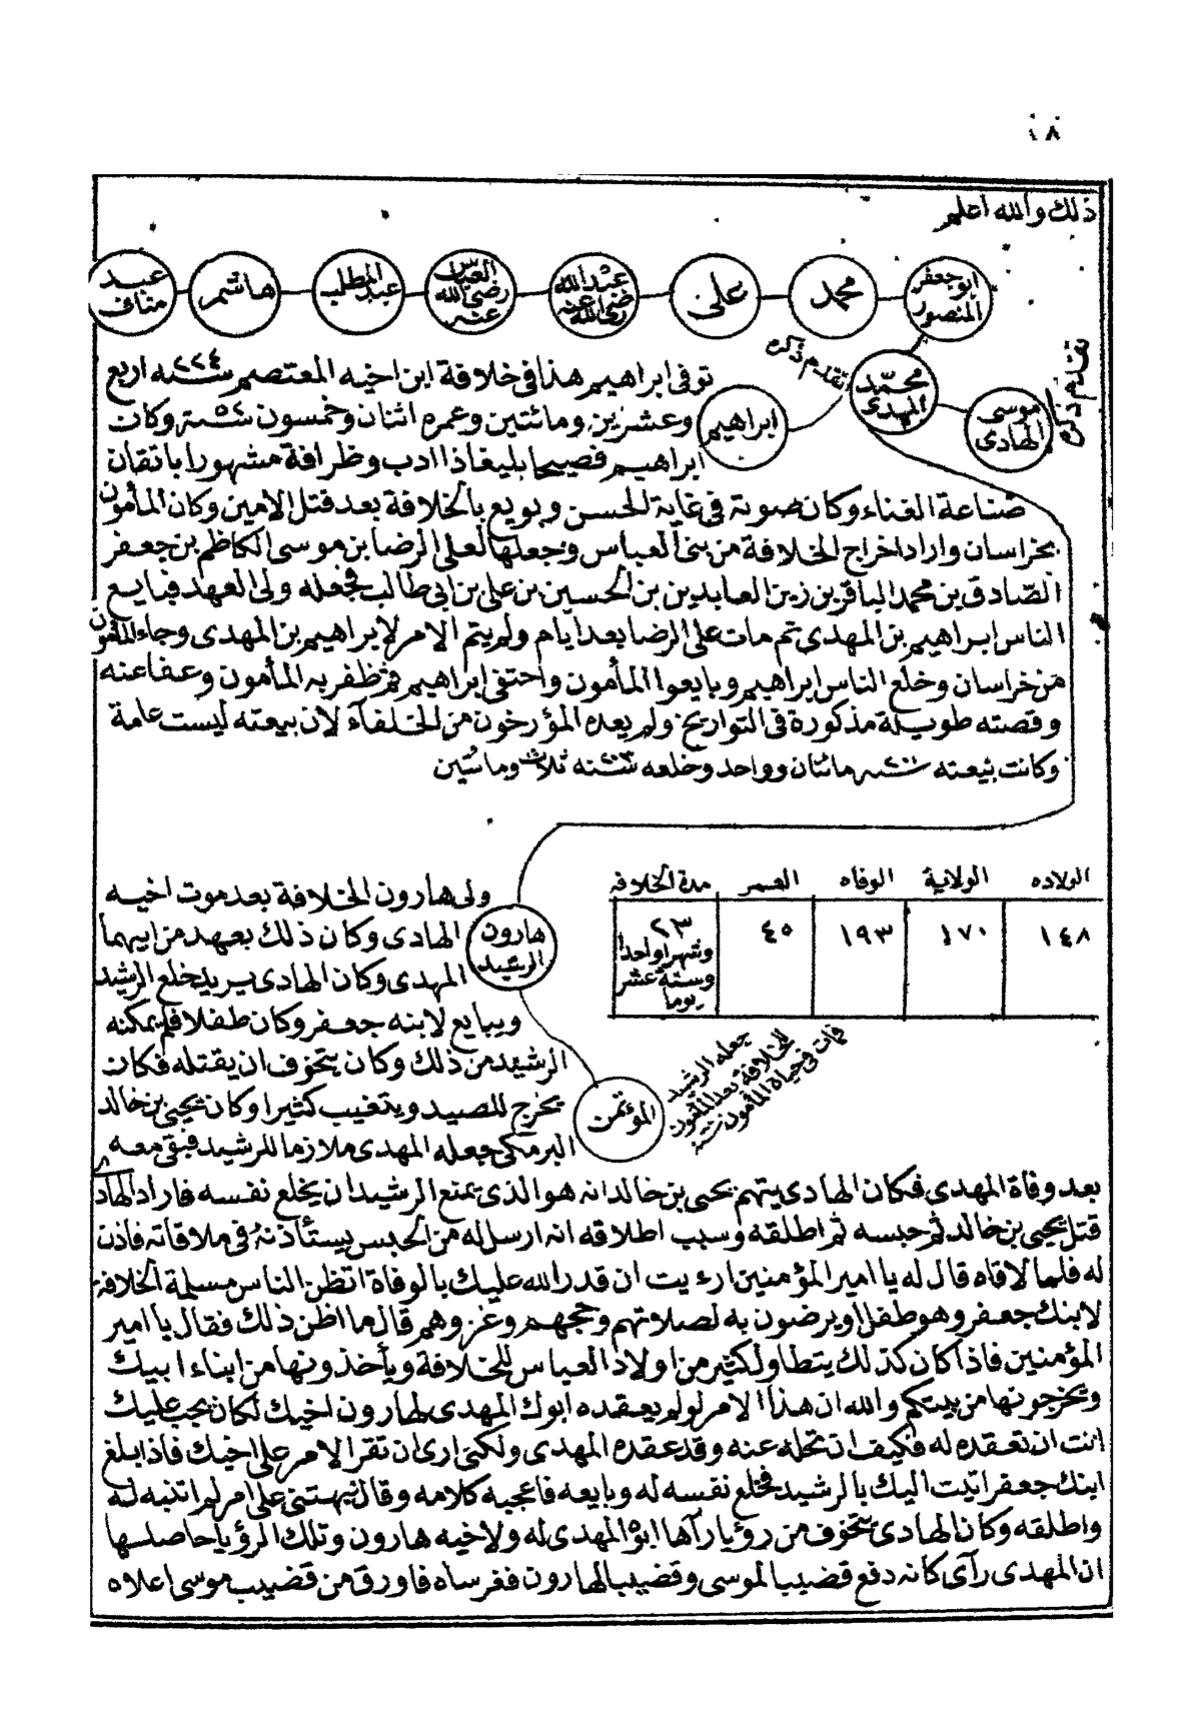 ذلك والله اعلم
ابو جعفر المنصور
محمد
على
عبد الله رضى الله عنه
العباس رضى الله عنه
عبد المطلب
هاشم
عبد مناف
محمد المهدى
تقدم ذكره
موسى الهادى
تقدم ذكره
ابراهيم
توفى ابراهيم هذا فى خلافة ابن اخيه المعتصم سنة ٢٢٤ اربع
وعشرين ومائتين وعمره اثنان وخمسون سنة وكان
ابراهيم فصيحا بليغا ذا ادب وظرافة مشهورا باتقان
صناعة الغناء وكان صوته فى غاية الحسن وبويع بالخلافة بعد قتل الامين وكان المأمون
بخراسان واراد اخراج الخلافة من بنى العباس وجعلها لعلى الرضا بن موسى الكاظم بن جعفر
الصادق بن محمد الباقر بن زين العابدين بن الحسين بن على بن ابى طالب فجعله ولى العهد فبايع
الناس ابراهيم بن المهدى ثم مات على الرضا بعد ايام ولم يتم الامر لابراهيم بن المهدى وجاء المأمون
من خراسان وخلع الناس ابراهيم وبايعوا المأمون واختفى ابراهيم ثم ظفر به المأمون وعفا عنه
وقصته طويلة مذكورة فى التواريخ ولم يعده المؤرخون من الخلفاء لان بيعته ليست عامة
وكانت بيعته سنة ٢٠١ مائتان وواحد وخلعه سنة ٢٠٣ ثلاث ومائتين
الولاده الولاية الوفاه العمر مدة الخلافه
١٤٨ ١٧٠ ١٩٣ ٤٥ ٢٣ وشهرا واحدا وستة عشر يوما
هارون الرشيد
ولى هارون الخلافة بعد موت اخيه
الهادى وكان ذلك بعهد من ابيهما
المهدى وكان الهادى يريد خلع الرشيد
ويبايع لابنه جعفر وكان طفلا فلم يمكنه
الرشيد من ذلك وكان يتخوف ان يقتله فكان
يخرج للصيد ويتغيب كثيرا وكان يحيى بن خالد
البرمكى جعله المهدى ملازما للرشيد فبقى معه
المؤتمن
جعله الرشيد
للخلافة بعد المأمون
فمات فى حياة المأمون سنة
بعد وفاة المهدى فكان الهادى يتهم يحيى بن خالد انه هو الذى يمنع الرشيد ان يخلع نفسه فاراد الهادى
قتل يحيى بن خالد ثم حبسه ثم اطلقه وسبب اطلاقه انه ارسل له من الحبس يستأذنه فى ملاقاته فاذن
له فلما لاقاه قال له يا امير المؤمنين ارءيت ان قدر الله عليك بالوفاة اتظن الناس مسلمة الخلافة
لابنك جعفر وهو طفل او يرضون به لصلاتهم وحجهم وغزوهم قال ما اظن ذلك فقال يا امير
المؤمنين فاذا كان كذلك يتطاول كثير من اولاد العباس للخلافة ويأخذونها من ابناء ابيك
وتخرجونها من بيتكم والله ان هذا الامر لو لم يعقده ابوك المهدى لهارون اخيك لكان يجب عليك
انت ان تعقده له فكيف ان تحله عنه وقد عقده المهدى ولكنى ارى ان تقر الامر على اخيك فاذا بلغ
ابنك جعفر اتيت اليك بالرشيد فخلع نفسه له وبايعه فاعجبه كلامه وقال نبهتنى على امر لم انتبه له
واطلقه وكان الهادى يتخوف من رؤيا رآها ابوه المهدى له ولاخيه هارون وتلك الرؤيا حاصلها
ان المهدى رآى كانه دفع قضيبا لموسى وقضيبا لهارون فغرساه فاورق من قضيب موسى اعلاه